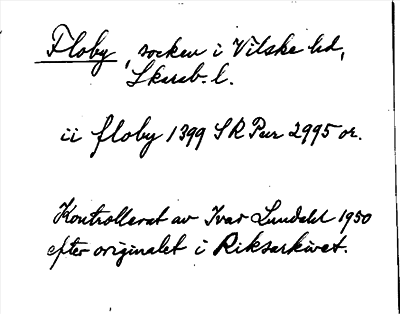 Floby, socken i Vilske hd,
Skarab. l.
ii floby 1399 SR Pur 2995 or.
Kontrollerat av Ivar Lundahl 1950
efter originalet i Riksarkivet.